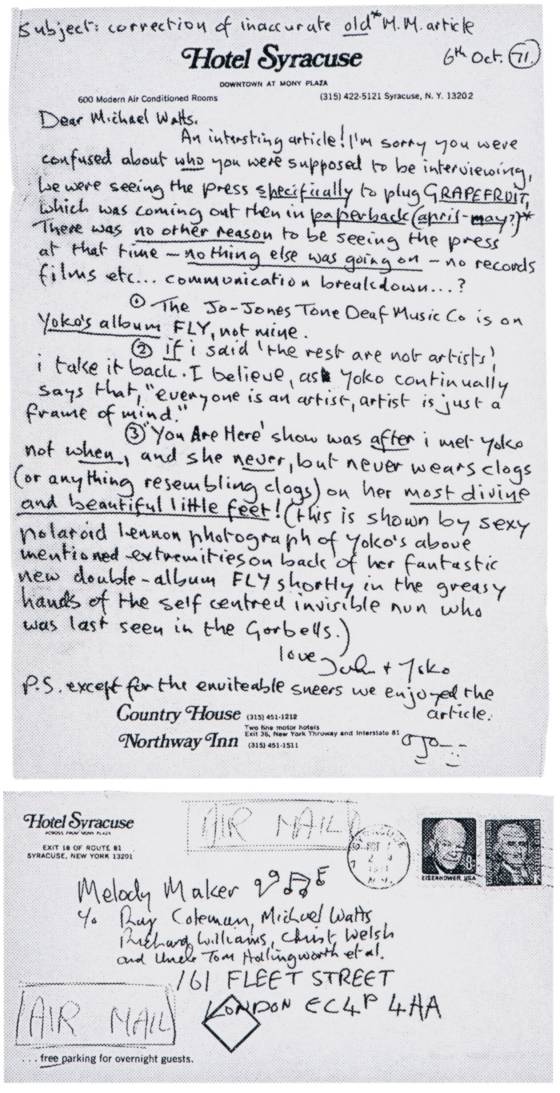 Subject: correction of inaccurate old* M.M. article
Hotel Syracuse
6th Oct. 71.
DOWNTOWN AT MONY PLAZA
600 Modern Air Conditioned Rooms
(315) 422-5121 Syracuse, N. Y. 13202
Dear Michael Watts.
An intersting article! I'm sorry you were
confused about who you were supposed to be interviewing,
we were seeing the press specifically to plug GRAPEFRUIT,
which was coming out then in paperback (april-may?)*
There was no other reason to be seeing the press
at that time – nothing else was going on – no records
films etc... communication breakdown...?
① The Jo-Jones Tone Deaf Music Co is on
Yoko's album FLY, not mine.
② If i said 'the rest are not artists',
i take it back. I believe, as Yoko continually
says that, "everyone is an artist, artist is just a
frame of mind."
③ 'You Are Here' show was after i met Yoko
not when, and she never, but never wears clogs
(or anything resembling clogs) on her most divine
and beautiful little feet! (this is shown by sexy
polaroid Lennon photograph of Yoko's above
mentioned extremities on back of her fantastic
new double-album FLY shortly in the greasy
hands of the self centred invisible nun who
was last seen in the Gorbells.)
love John + Yoko
P.S. except for the enviteable sneers we enjoyed the
article.
Country House (315) 451-1212
Two fine motor hotels
Exit 36, New York Thruway and Interstate 81
Northway Inn (315) 451-1511
Hotel Syracuse
ACROSS FROM MONY PLAZA
EXIT 18 OF ROUTE 81
SYRACUSE, NEW YORK 13201
AIR MAIL
EISENHOWER USA
Melody Maker
c/o Ray Coleman, Michael Watts
Richard Williams, Christ Welsh
and Uncle Tom Hollingworth et al.
161 FLEET STREET
LONDON EC4P 4AA
AIR MAIL
... free parking for overnight guests.